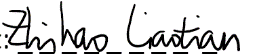 : Zhihao Liaotian